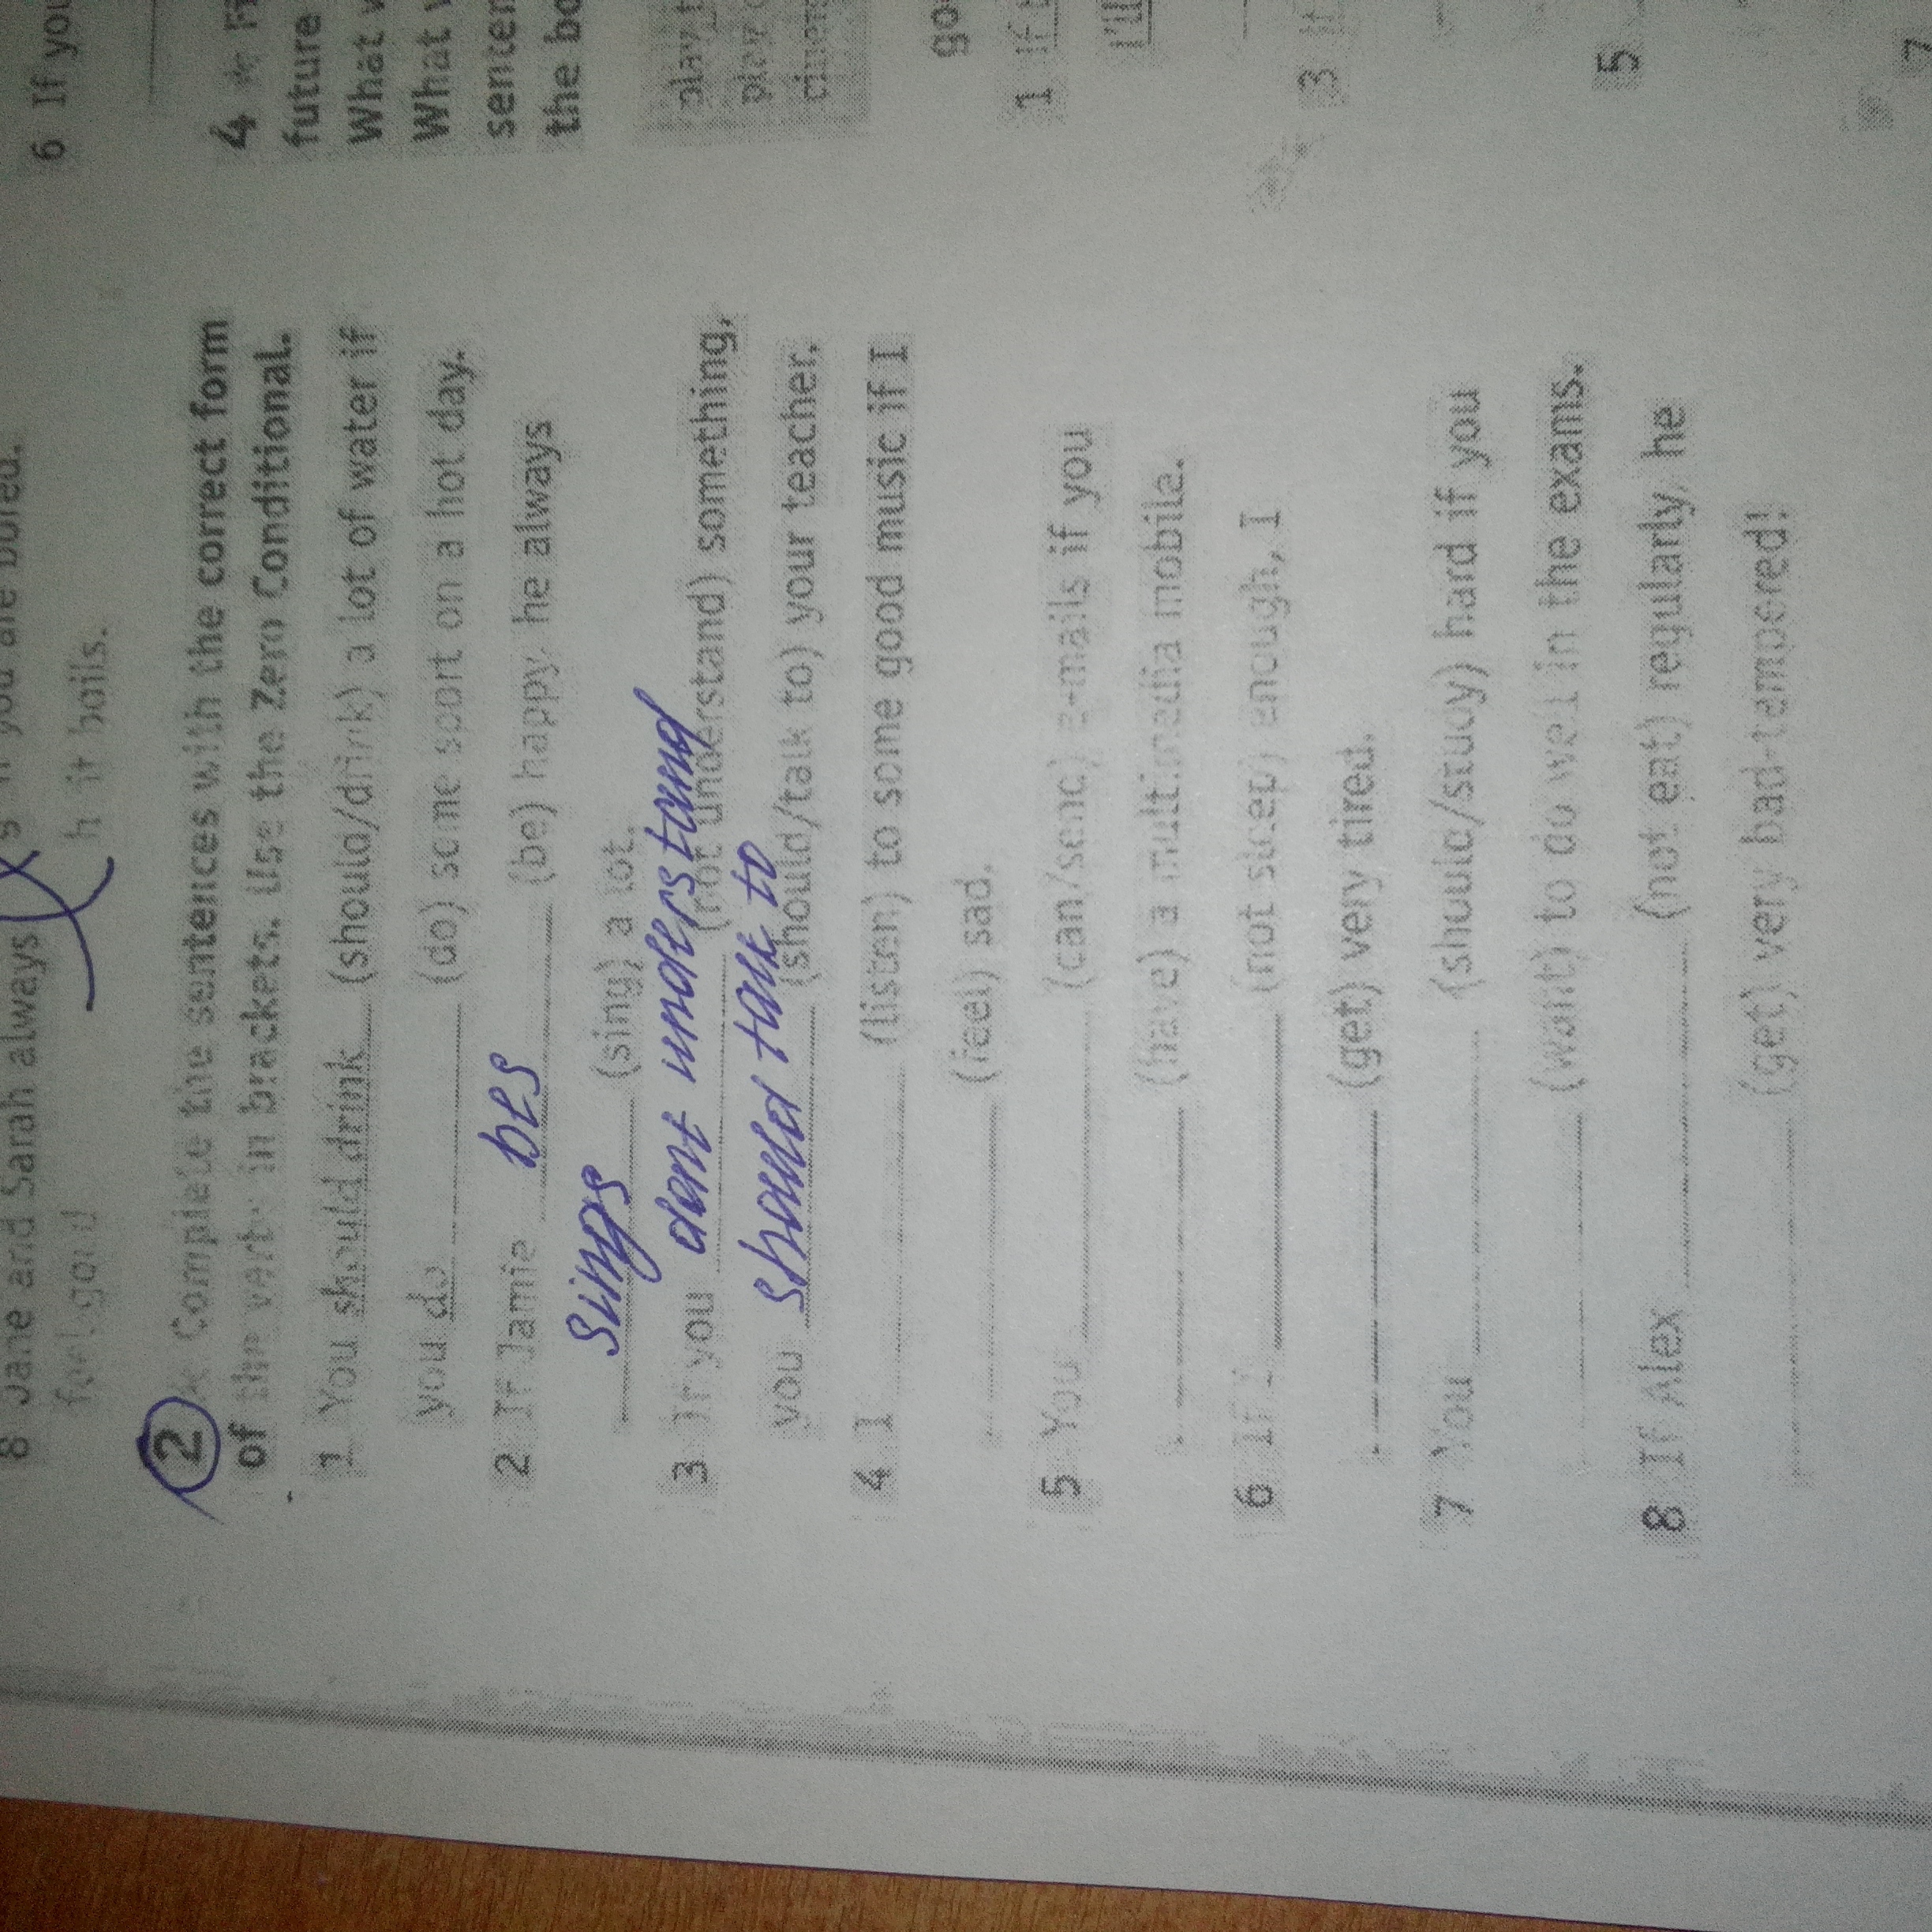 8 Jane and Sarah always s if you are bored.
feel good h it boils.
2 * Complete the sentences with the correct form
of the verbs in brackets. Use the Zero Conditional.
1 You should drink (should/drink) a lot of water if
you do (do) some sport on a hot day.
2 If Jamie bes (be) happy, he always
sings (sing) a lot.
3 If you dont understand (not understand) something,
you should talk to (should/talk to) your teacher.
4 I (listen) to some good music if I
(feel) sad.
5 You (can/send) e-mails if you
(have) a multimedia mobile.
6 If I (not sleep) enough, I
(get) very tired.
7 You (should/study) hard if you
(want) to do well in the exams.
8 If Alex (not eat) regularly, he
(get) very bad-tempered!
6 If you
4 *
future
What
What
senten
the bo
play
play
cinem
go
1 If
I'll
3 If
5
7